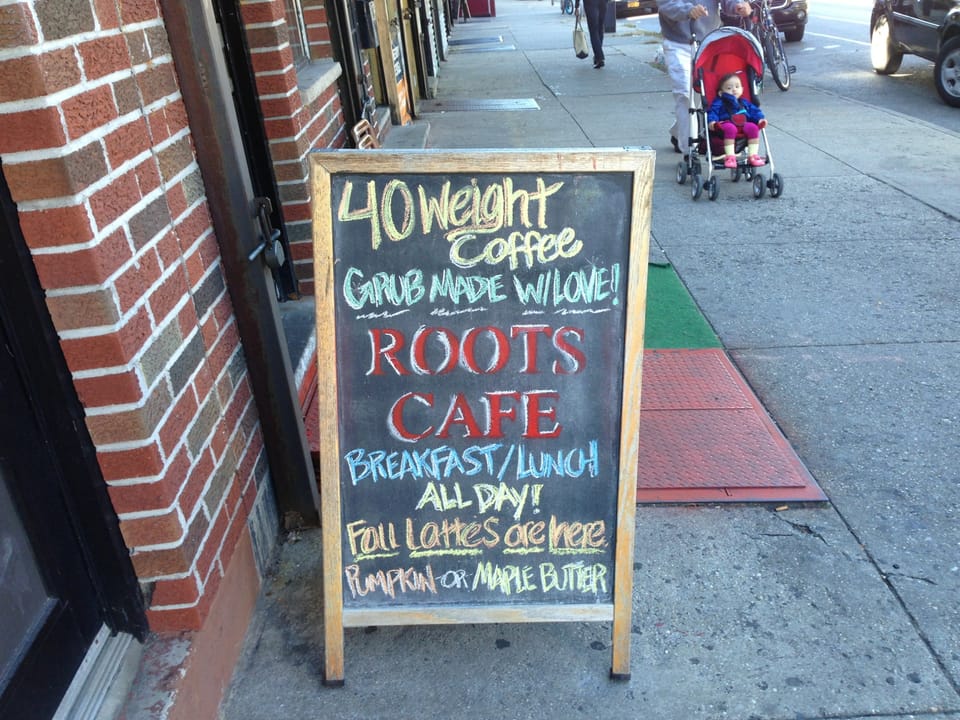 40 Weight
Coffee
GRUB MADE W/ LOVE!
ROOTS
CAFE
BREAKFAST/LUNCH
ALL DAY!
Fall Lattes are here
PUMPKIN OR MAPLE BUTTER